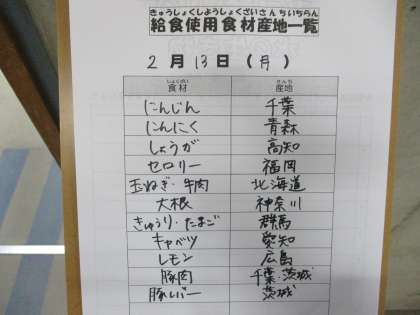 きゅうしょくしようしょくざいさんちいちらん
給食使用食材産地一覧
2月13日(月)
しょくざい さんち
食材 産地
にんじん 千葉
にんにく 青森
しょうが 高知
セロリー 福岡
玉ねぎ・牛肉 北海道
大根 神奈川
きゅうり・たまご 群馬
キャベツ 愛知
レモン 広島
豚肉 千葉 茨城
豚レバー 茨城